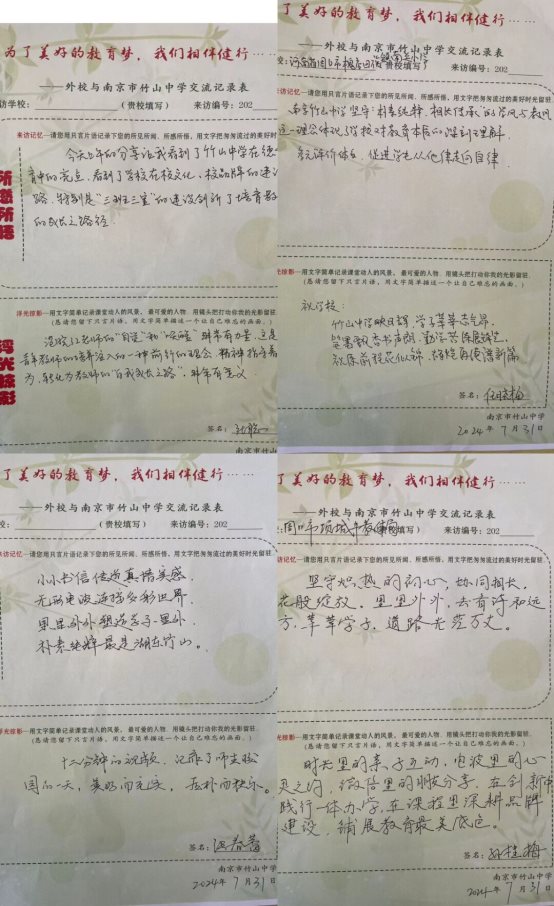 为了美好的教育梦，我们相伴健行……
——外校与南京市竹山中学交流记录表
访学校：（贵校填写） 来访编号：202
来访记忆—请您用只言片语记录下您的所见所闻、所感所悟，用文字把匆匆流过的美好时
所感所悟
今天上午的分享让我看到了竹山中学在德
育中的亮点，看到了学校在校文化、校品牌的建设
路，特别是“三班三室”的建设创新了培育教
的成长之路径。
浮光掠影—用文字简单记录课堂动人的风景、最可爱的人物、用镜头把打动你我的光影留
（恳请您留下只言片语，用文字简单描述一个让自己难忘的画面。）
浮光掠影
非常有力量，这是
青年教师的培养注入的一种前行的理念，精神指导着
为，转化为教师的“自我成长之路”，非常有意义。
签名：
南京市竹山中
了美好的教育梦，我们相伴健行……
——外校与南京市竹山中学交流记录表
（贵校填写） 来访编号：202
来访记忆—请您用只言片语记录下您的所见所闻、所感所悟，用文字把匆匆流过的美好时光留驻
南京竹山中学坚守“朴素纯粹、相长传承”的学风与教风
这一理念体现了学校对教育本质的深刻理解。
多元评价体系，促进学生从他律走向自律。
掠影—用文字简单记录课堂动人的风景、最可爱的人物、用镜头把打动你我的光影留驻。
（恳请您留下只言片语，用文字简单描述一个让自己难忘的画面。）
祝学校：
竹山中学映日辉，学子莘莘志气昂。
笔墨飘香书声朗，
祝愿前程花似锦，谱新篇
签名：
南京市竹山中学
2024年7月31日
了美好的教育梦，我们相伴健行……
——外校与南京市竹山中学交流记录表
校：（贵校填写） 来访编号：202
来访记忆—请您用只言片语记录下您的所见所闻、所感所悟，用文字把匆匆流过的美好时光留驻。
小小书信传递真情实感，
无形电波连接多彩世界，
果里外外塑造孩子里外，
朴素纯粹最是湖东竹山。
浮光掠影—用文字简单记录课堂动人的风景、最可爱的人物、用镜头把打动你我的光影留驻。
（恳请您留下只言片语，用文字简单描述一个让自己难忘的画面。）
十二分钟的视频，记录了师生校
园的一天，美好而充实，质朴而快乐。
签名：
南京市竹山中学
2024年7月31日
了美好的教育梦，我们相伴健行……
——外校与南京市竹山中学交流记录表
周口市项城市教体局（贵校填写） 来访编号：202
访记忆—请您用只言片语记录下您的所见所闻、所感所悟，用文字把匆匆流过的美好时光留驻。
坚守炽热的初心，协同相长，
花般绽放。里里外外，去有诗和远
方，莘莘学子，道路光芒万丈。
光掠影—用文字简单记录课堂动人的风景、最可爱的人物、用镜头把打动你我的光影留驻。
（恳请您留下只言片语，用文字简单描述一个让自己难忘的画面。）
时光里的亲子互动，电波里的心
灵之约，微信里的分享，在创新中
践行一体办学，在课程里深耕品牌
建设，铺展教育最美底色。
签名：孙桂梅
南京市竹山中学
2024年7月31日